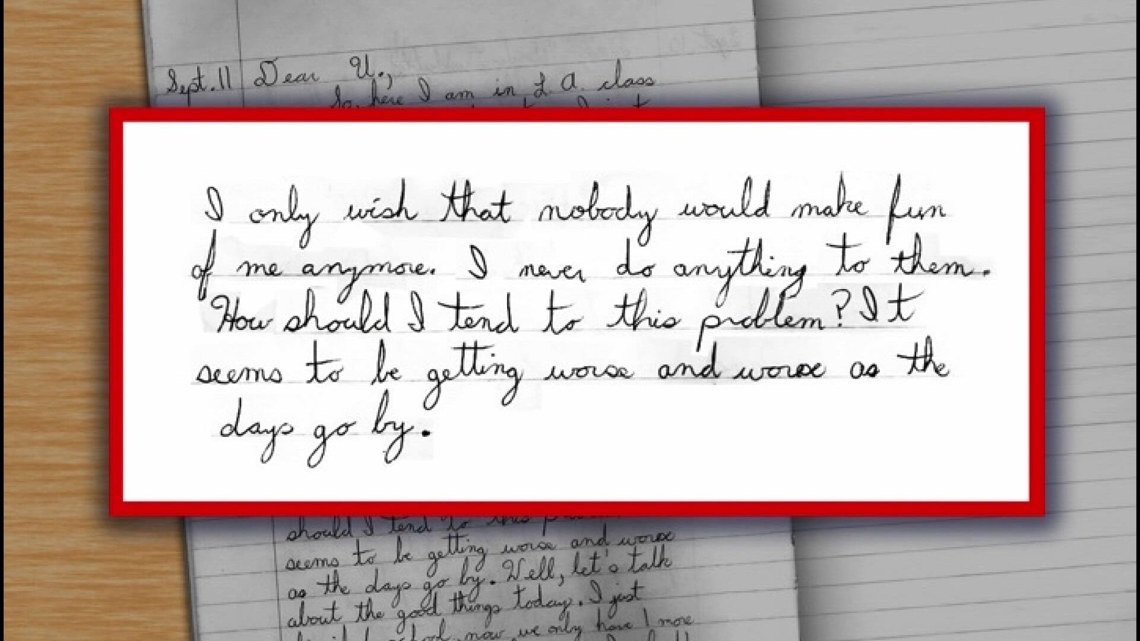 Sept. 11 Dear U.,
So here I am in L.A. class
I only wish that nobody would make fun
of me anymore. I never do anything to them.
How should I tend to this problem? It
seems to be getting worse and worse as the
days go by.
should I tend to this
seems to be getting worse and worse
as the days go by. Well, let's talk
about the good things today. I just
school now we only have 1 more